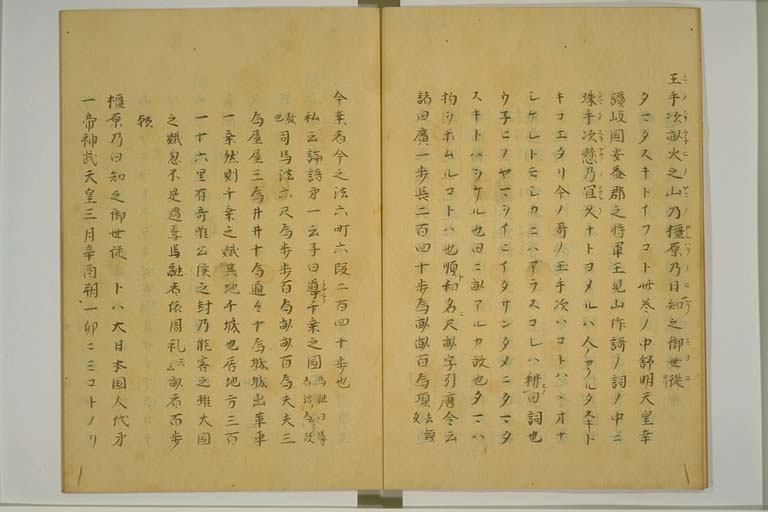 玉手次畝火之山乃橿原乃日知之御世従
タマタスキトイフコト此巻ノ中舒明天皇幸
讃岐国安益郡之時軍王見山作謌ノ詞ノ中ニ
珠手次懸乃宜久ナトヨメルハ人ノアクルタスキト
キコエタリ今ノ哥ノ玉手次ハコトハヽオナ
シケレトモシカニハアラスコレハ耕田詞也
ウネヒノヤマヲイヒイタサンタメニタマタ
スキトハツケル也田ニ畝アルカ故也タマハ
物ヲホムルコトハ也順和名尺畝字引唐令云
諸田廣一歩長二百四十歩為畝畝百為頃
今案者今之法六町六段二百四十歩也
私云論語第一云子曰導千乗之国馬融曰導
司馬法六尺為歩歩百為畝畝百為夫夫三
為屋屋三為井井十為通々十為城城出革車
一乗然則千乗之賦其地千城也居地方三百
一十六里有奇唯公侯之封乃能容之雖大国
之賦忽不是過焉馬融者依周礼 畝者百歩
橿原乃日知之御世従 トハ大日本国人代第
一帝神武天皇三月辛酉朔 卯ニミコトノリ